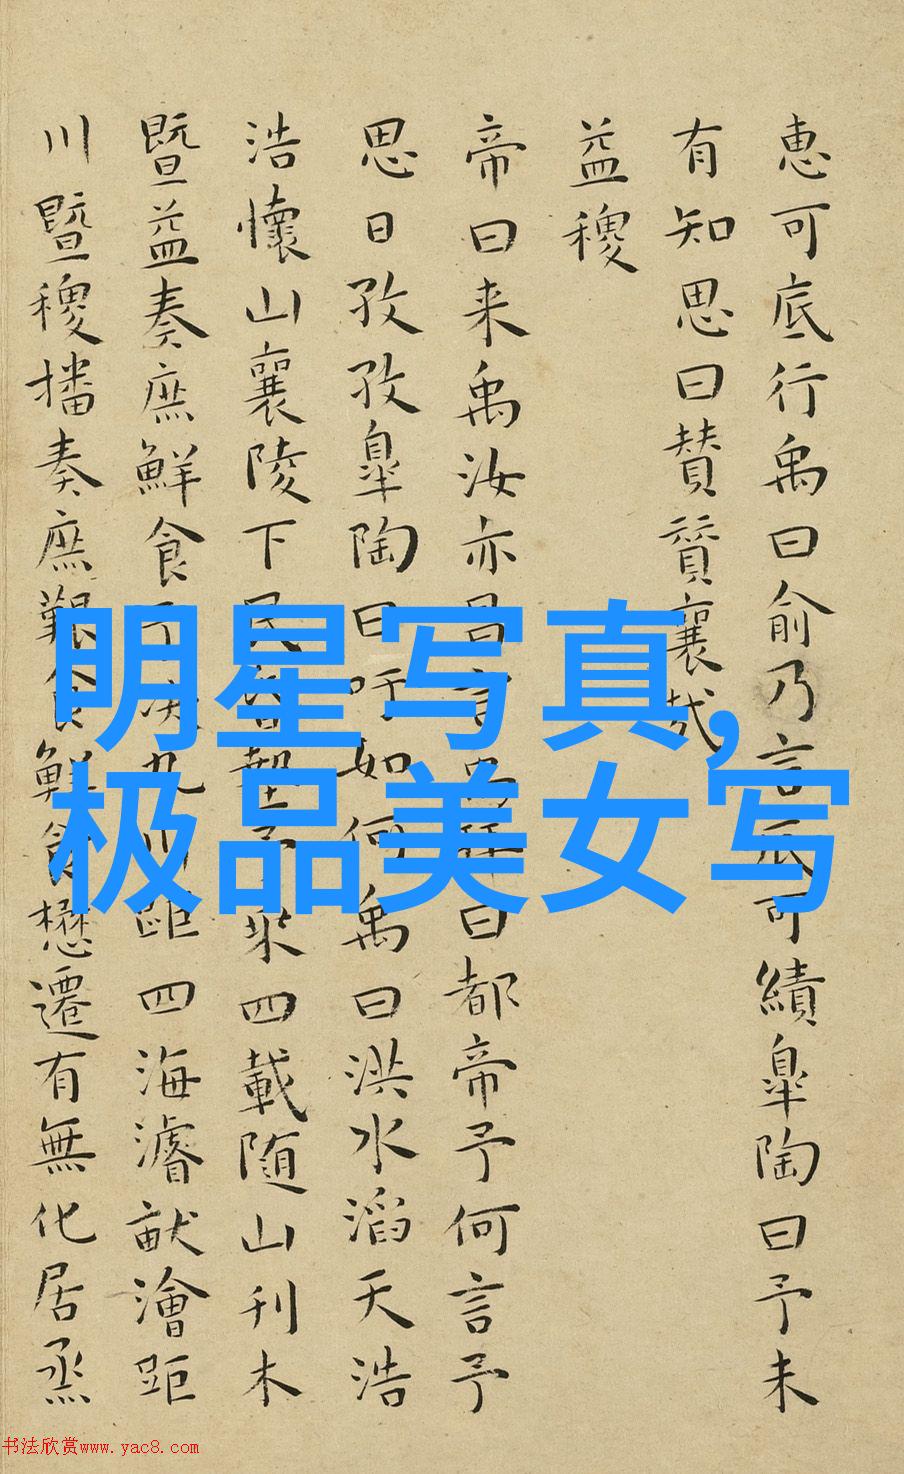 惠可底行禹曰俞乃言底可績皐陶曰予未
有知思曰贊贊襄哉
益稷
帝曰来禹汝亦昌言禹拜曰都帝予何言予
思日孜孜皐陶曰吁如何禹曰洪水滔天浩
浩懷山襄陵下民昏墊予乘四載随山刊木
暨益奏庶鮮食予决九川距四海濬畎澮距
川暨稷播奏庶艱食鮮食懋遷有無化居烝
明星写真,
极品美女写
书法欣赏www.yac8.com